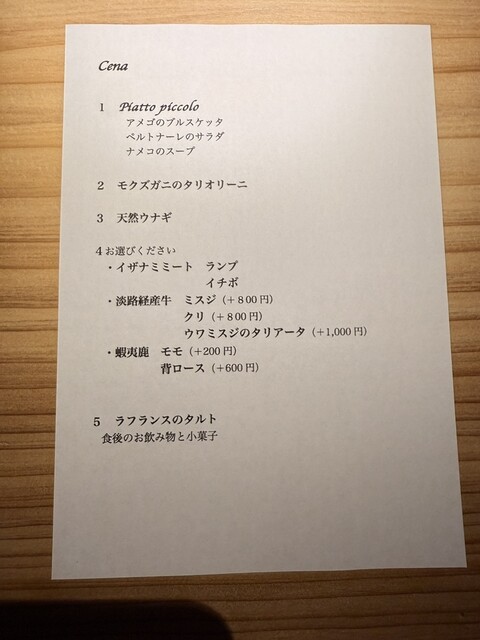 Cena
1 Piatto piccolo
アメゴのブルスケッタ
ベルトナーレのサラダ
ナメコのスープ
2 モクズガニのタリオリーニ
3 天然ウナギ
4お選びください
・イザナミミート ランプ
イチボ
・淡路経産牛 ミスジ（＋800円）
クリ（＋800円）
ウワミスジのタリアータ（＋1,000円）
・蝦夷鹿 モモ（＋200円）
背ロース（＋600円）
5 ラフランスのタルト
食後のお飲み物と小菓子